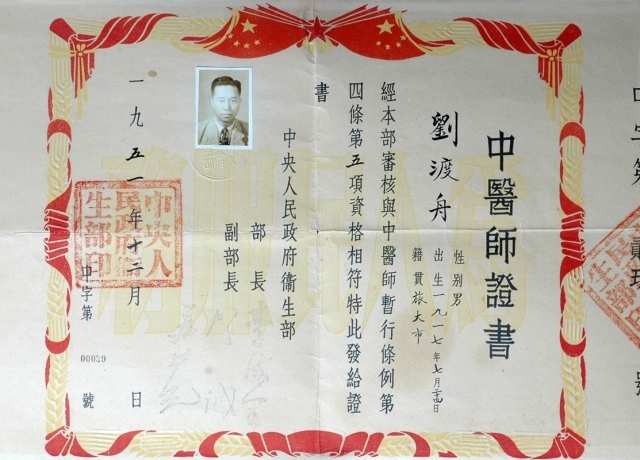 中醫師證書
劉渡舟
性別男
出生一九一七年七月
籍貫旅大市
經本部審核與中醫師暫行條例第
四條第五項資格相符特此發給證
書
中央人民政府衞生部
部長
副部長
一九五一年十二月 日
中央人
民政府衞
生部印
中字第00029號